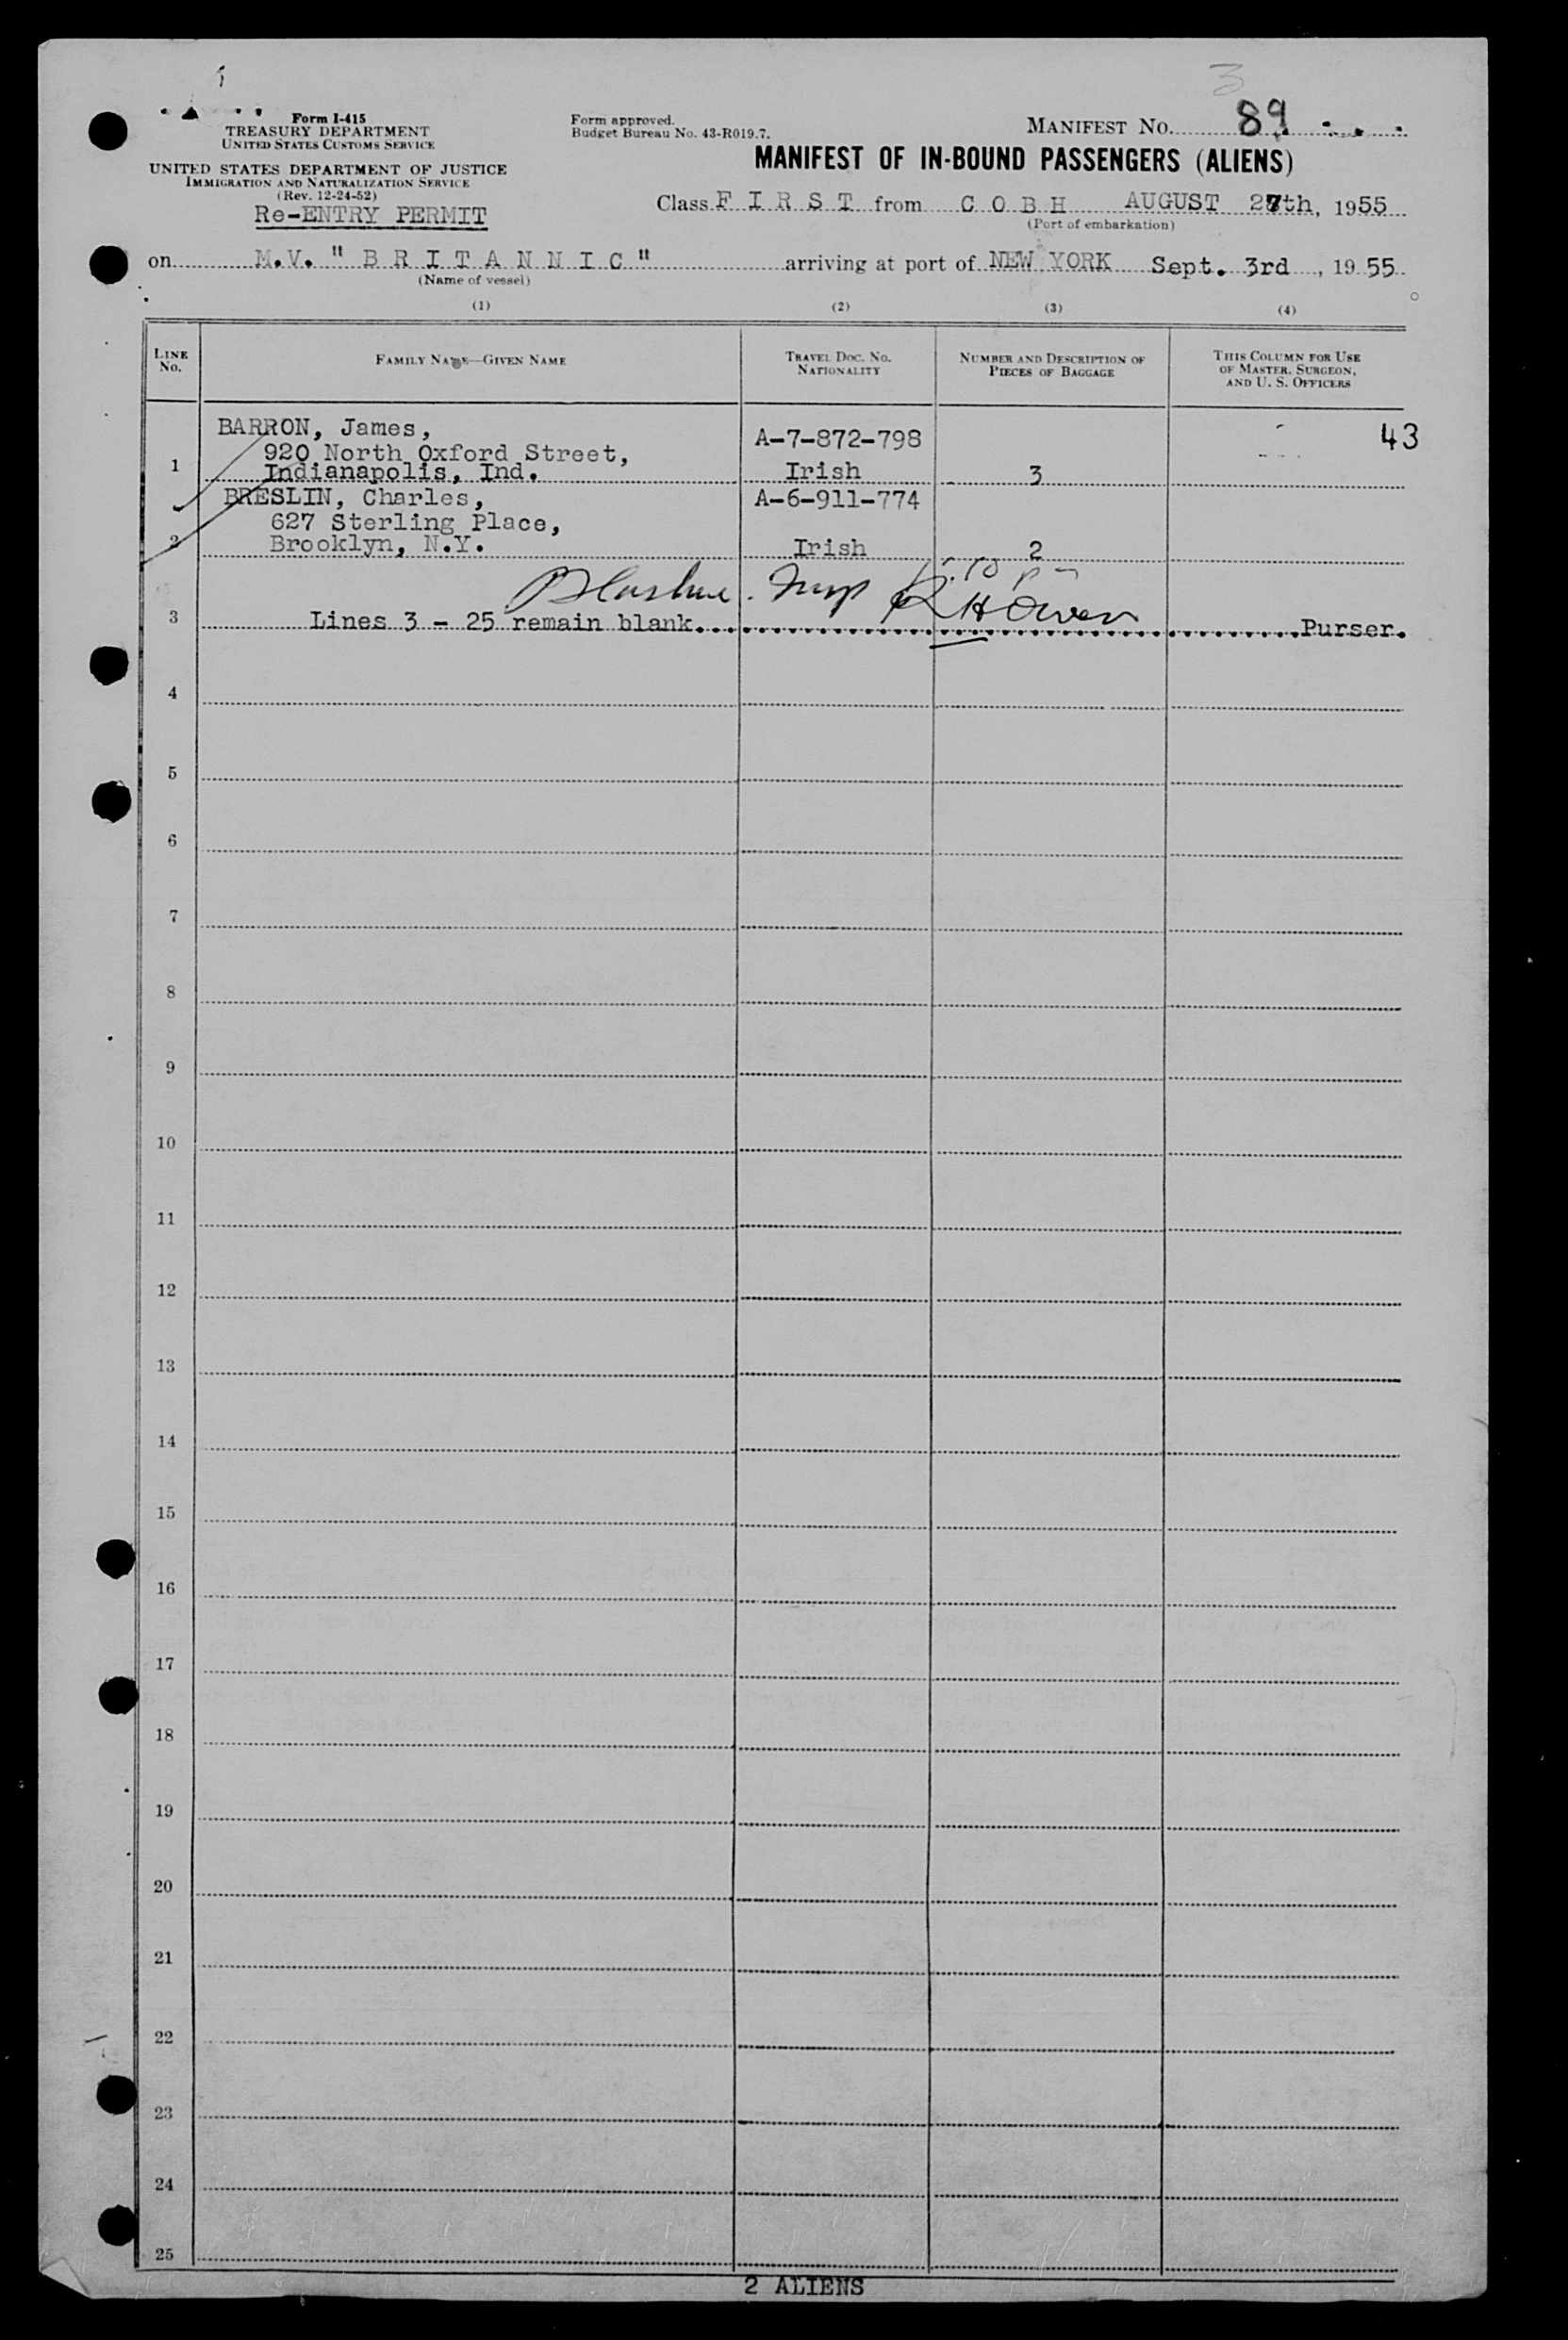 3
Form I-415
TREASURY DEPARTMENT
UNITED STATES CUSTOMS SERVICE
UNITED STATES DEPARTMENT OF JUSTICE
IMMIGRATION AND NATURALIZATION SERVICE
(Rev. 12-24-52)
Re-ENTRY PERMIT
Form approved.
Budget Bureau No. 43-R019.7.
MANIFEST NO. 89
MANIFEST OF IN-BOUND PASSENGERS (ALIENS)
Class F I R S T from C O B H AUGUST 27th, 1955
(Port of embarkation)
on M.V. "B R I T A N N I C" arriving at port of NEW YORK Sept. 3rd, 1955
(Name of vessel)
(1) (2) (3) (4)
LINE NO. FAMILY NAME—GIVEN NAME TRAVEL DOC. NO. NATIONALITY NUMBER AND DESCRIPTION OF PIECES OF BAGGAGE THIS COLUMN FOR USE OF MASTER, SURGEON, AND U. S. OFFICERS
BARRON, James, A-7-872-798 43
920 North Oxford Street,
1 Indianapolis, Ind. Irish 3
BRESLIN, Charles, A-6-911-774
627 Sterling Place,
2 Brooklyn, N.Y. Irish 2
R H Owen
3 Lines 3 - 25 remain blank. Purser.
4
5
6
7
8
9
10
11
12
13
14
15
16
17
18
19
20
21
22
23
24
25
2 ALIENS